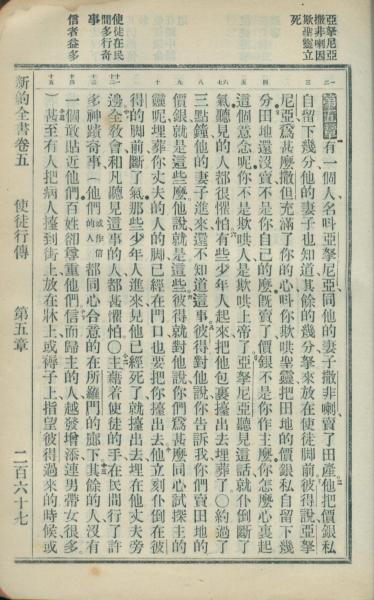 亞拏尼亞
撒非喇因
欺誑聖靈立
死
使徒在民
間多行奇
事
信者益多
第五章有一個人名呌亞拏尼亞同他的妻子撒非喇賣了田產他把價銀私
自留下幾分他的妻子也知道其餘的幾分拏來放在使徒脚前彼得說亞拏
尼亞爲甚麼撒但充滿了你的心呌你欺哄聖靈把田地的價銀私自留下幾
分田地還沒賣不是你自己的麼旣賣了價銀不是你作主麼你怎麼心裏起
這個意念呢你不是欺哄人是欺哄上帝了亞拏尼亞聽見這話就仆倒斷了
氣聽見的人都很懼怕有些少年人起來把他包裹擡出去埋葬了〇約過了
三點鐘他的妻子進來還不知道這事彼得對他說你告訴我你們賣田地的
價銀就是這些麼他說就是這些彼得就對他說你們爲甚麼同心試探主的
靈呢埋葬你丈夫的人的脚已經在門口也要把你擡出去他立刻仆倒在彼
得的脚前斷了氣那些少年人進來見他已經死了就擡出去埋在他丈夫旁
邊全敎會和凡聽見這事的人都甚懼怕〇主藉着使徒的手在民間行了許
多神蹟奇事(他們或作信的人都同心合意的在所羅門的廊下其餘的人沒有
一個敢貼近他們百姓卻尊重他們信而歸主的人越發增添連男帶女很多
)甚至有人把病人擡到街上放在牀上或褥子上指望彼得過來的時候或
新約全書卷五 使徒行傳 第五章 二百六十七